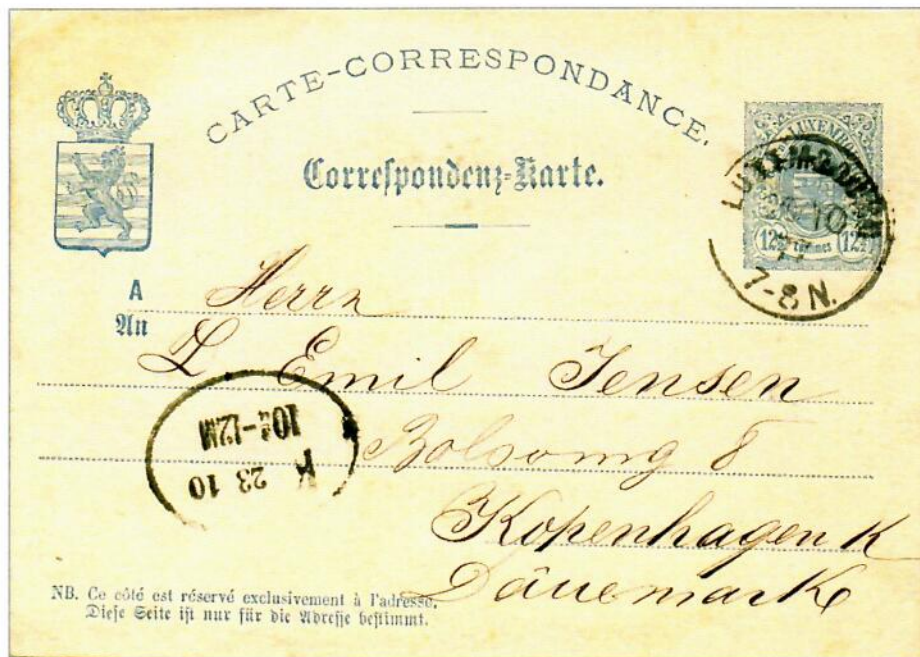 CARTE-CORRESPONDANCE.
Correspondenz-Karte.
LUXEMBOURG
10
7-8 N.
12½ CENTIMES 12½
A
An
Herrn
L. Emil Jensen
8
Kopenhagen K
Dänemark
K
23 10
10¾-12M
NB. Ce côté est réservé exclusivement à l'adresse.
Diese Seite ist nur für die Adresse bestimmt.